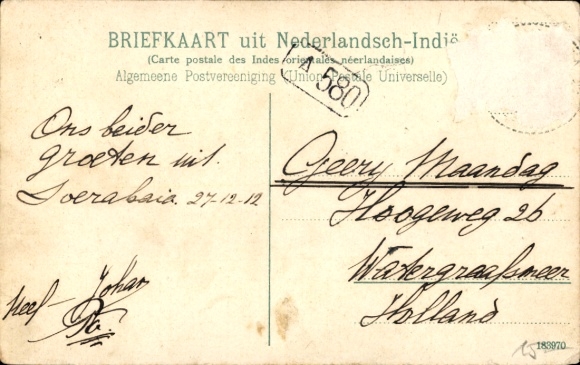 BRIEFKAART uit Nederlandsch-Indië
(Carte postale des Indes orientales néerlandaises)
Algemeene Postvereeniging (Union Postale Universelle)
A 580
Ons beider
groeten uit
Soerabaia 27-12-12
Neef Johan
Geery Maandag
Hoogeweg 26
Watergraafsmeer
Holland
183970
15